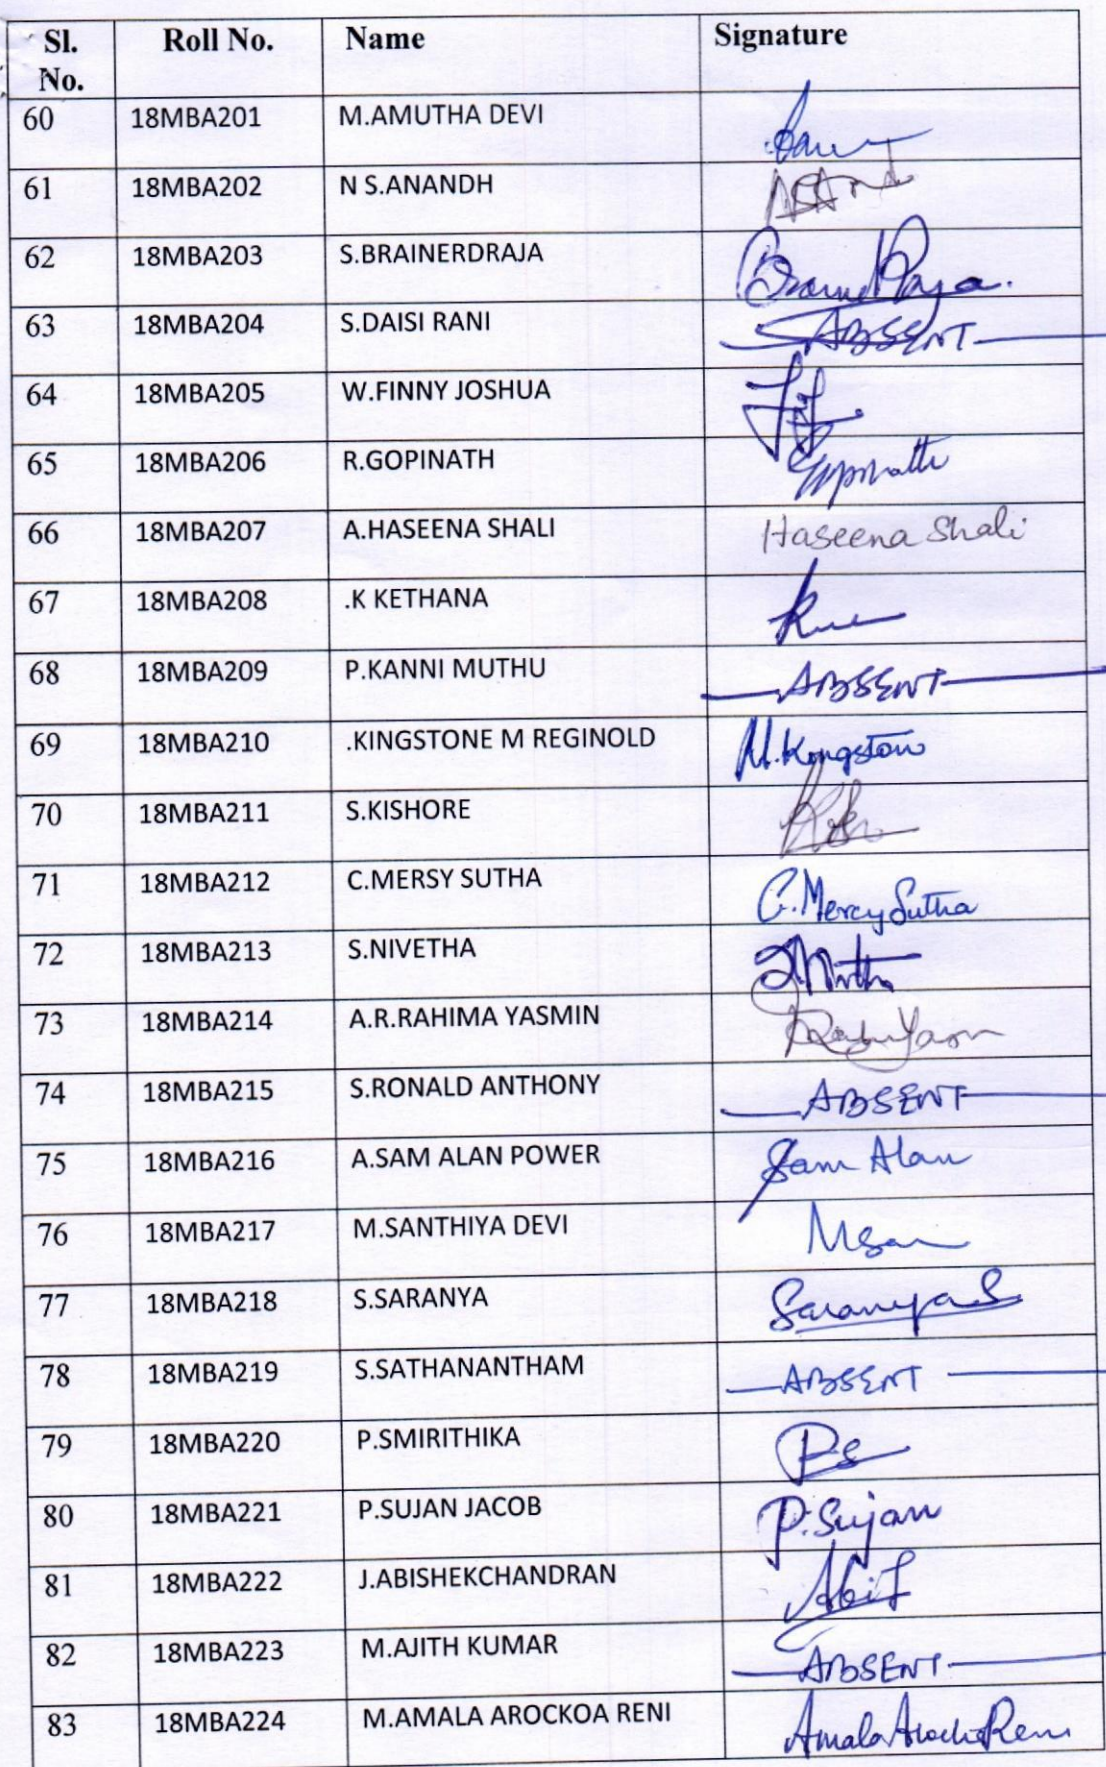 Sl. No. Roll No. Name Signature
60 18MBA201 M.AMUTHA DEVI
61 18MBA202 N S.ANANDH
62 18MBA203 S.BRAINERDRAJA
63 18MBA204 S.DAISI RANI ABSENT
64 18MBA205 W.FINNY JOSHUA
65 18MBA206 R.GOPINATH
66 18MBA207 A.HASEENA SHALI Haseena Shali
67 18MBA208 .K KETHANA
68 18MBA209 P.KANNI MUTHU ABSENT
69 18MBA210 .KINGSTONE M REGINOLD M.Kingston
70 18MBA211 S.KISHORE
71 18MBA212 C.MERSY SUTHA C.Mercy Sutha
72 18MBA213 S.NIVETHA
73 18MBA214 A.R.RAHIMA YASMIN
74 18MBA215 S.RONALD ANTHONY ABSENT
75 18MBA216 A.SAM ALAN POWER Sam Alan
76 18MBA217 M.SANTHIYA DEVI
77 18MBA218 S.SARANYA Saranya S
78 18MBA219 S.SATHANANTHAM ABSENT
79 18MBA220 P.SMIRITHIKA PS
80 18MBA221 P.SUJAN JACOB P.Sujan
81 18MBA222 J.ABISHEKCHANDRAN
82 18MBA223 M.AJITH KUMAR ABSENT
83 18MBA224 M.AMALA AROCKOA RENI